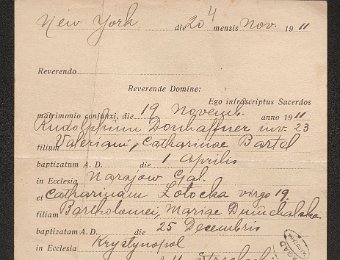 New York die 20 mensis Nov. 1911
Reverendo
Reverende Domine:
Ego infrascriptus Sacerdos
matrimonio conjunxi, die 19 Novemb. anno 1911
Rudolphum juv. 23
filium Valeriani, Catharinae Bartol
baptizatum A. D. die 1 Aprilis
in Ecclesia Narajow Gal.
et Catharinam Lotocka virgo 19
filiam Bartholomei, Mariae
baptizatam A. D. die 25 Decembris
in Ecclesia Krystynopol